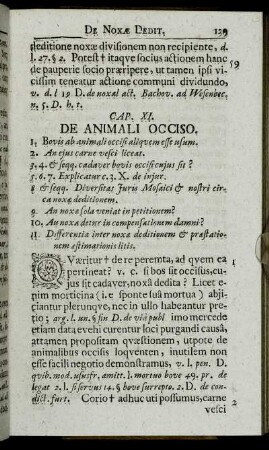 DE NOXÆ DEDIT. 129
deditione noxæ divisionem non recipiente, d.
l. 27. § 2. Potest † itaque socius actionem hanc
de pauperie socio præripere, ut tamen ipsi vi- 59
cissim teneatur actione communi dividundo,
v. d l 19 D. de noxal act. Bachov. ad Wesenbec.
n. 5. D. h. t.
CAP. XI.
DE ANIMALI OCCISO.
1. Bovis ab animali occisi aliqvem esse usum.
2. An ejus carne vesci liceat.
3. 4. & seqq. cadaver bovis occisi cujus sit?
5. 6. 7. Explicatur c. 3. X. de injur.
8 & seqq. Diversitas Juris Mosaici & nostri cir-
ca noxæ deditionem.
9. An noxa sola veniat in petitionem?
10. An noxa detur in compensationem damni?
11 Differentia inter noxæ deditionem & præstatio-
nem æstimationis litis.
QVæritur † de re peremta, ad quem ea 1
pertineat? v. c. si bos sit occisus, cu-
jus sit cadaver, noxâ dedita? Licet e-
nim morticina (i. e sponte suâ mortua) abji-
ciantur plerunque, nec in ullo habeantur pre-
tio; arg. l. un. § sin D. de viâ publ. imo mercede
etiam data evehi curentur loci purgandi causâ,
attamen propositam qvæstionem, utpote de
animalibus occisis loqventem, inutilem non
esse facili negotio demonstramus, v. l. pen. D.
qvib. mod. ususfr. amitt. l. mortuo bove 49. pr. de
legat 2. l. si servus 14. § bove surrepto. 2. D. de con-
dict. furt. Corio † adhuc uti possumus, carne 2
vesci